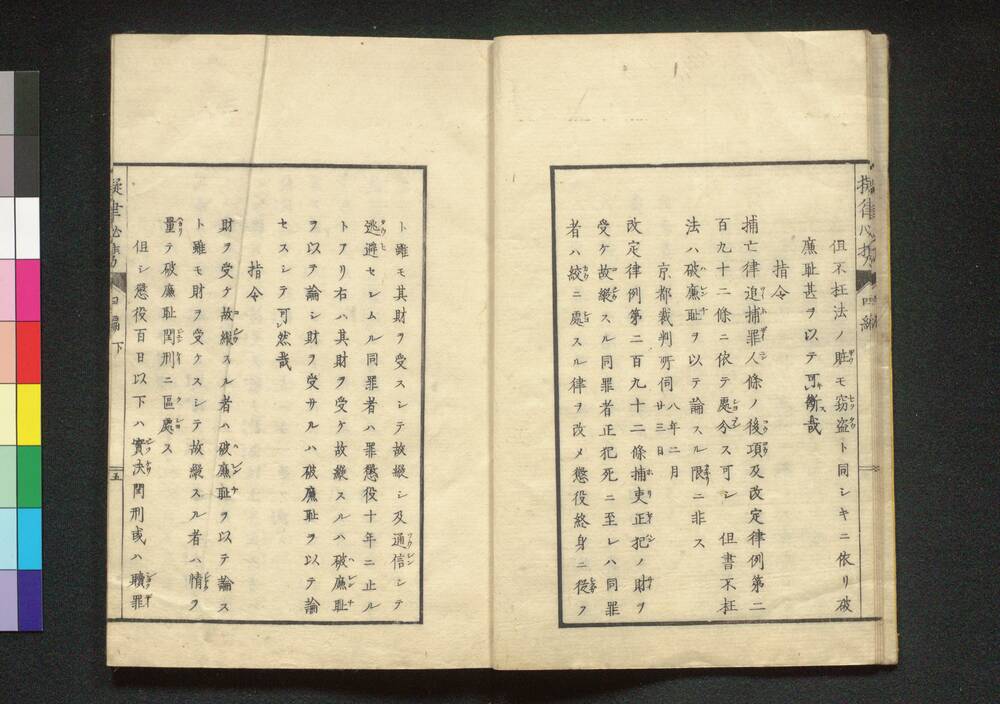 但不枉法ノ贓モ窃盗ト同シキニ依リ破
廉耻甚ヲ以テ可断哉
指令
捕亡律追捕罪人條ノ後項及改定律例第二
百九十二條ニ依テ處分ス可シ 但書不枉
法ハ破廉耻ヲ以テ論スル限ニ非ス
京都裁判所伺 八年二月廿三日
改定律例第二百九十二條捕吏正犯ノ財ヲ
受ケ故縱スル同罪者正犯死ニ至レハ同罪
者ハ絞ニ處スル律ヲ改メ懲役終身ニ從フ
ト雖モ其財ヲ受スシテ故縱シ及通信シテ
逃避セシムル同罪者ハ罪懲役十年ニ止ル
トアリ右ハ其財ヲ受ケ故縱スルハ破廉耻
ヲ以テ論シ財ヲ受サルハ破廉耻ヲ以テ論
セスシテ可然哉
指令
財ヲ受ケ故縱スル者ハ破廉耻ヲ以テ論ス
ト雖モ財ヲ受ケスシテ故縱スル者ハ情ヲ
量テ破廉耻閏刑ニ區處ス
但シ懲役百日以下ハ實决閏刑或ハ贖罪
擬律必携 四編下
五